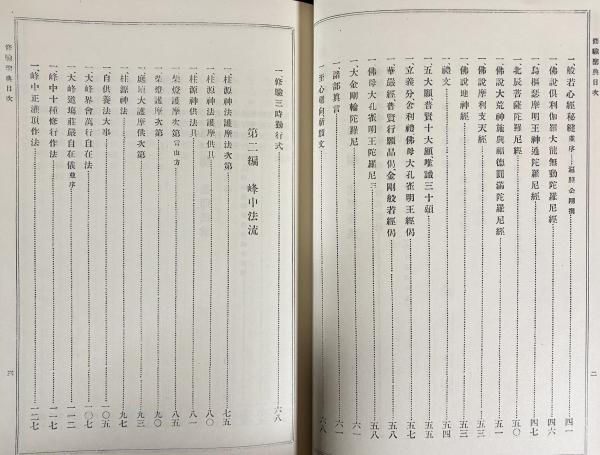 修驗聖典目次
一、般若心經秘鍵
一、佛說俱利伽羅大龍無動陀羅尼經……四六
一、烏樞瑟摩明王神通陀羅尼經……四七
一、北辰菩薩陀羅尼經……五〇
一、佛說大荒神施與福德圓滿陀羅尼經……五一
一、佛說摩利支天經……五三
一、佛說地神經……五三
一、禮文……五四
一、五大願普賢十大願唯識三十頌……五五
一、立義分舍利禮佛母大孔雀明王經偈
一、華嚴經普賢行願品偈金剛般若經偈
一、佛母大孔雀明王陀羅尼……五八
一、大金剛輪陀羅尼……六一
一、諸部眞言……六一
一、至心廻向祈願文……六八
二
修驗聖典目次
一、修驗三時勤行式……六八
第二編 峰中法流
一、柱源神法護摩法次第……七五
一、柱源神法護摩供具……八〇
一、柱源神供法具……八一
一、柴燈護摩次第 當山方……八五
一、柴燈護摩次第……九〇
一、庭壇大護摩供次第……九三
一、柱源神法……九七
一、自供養法大事……一〇五
一、大峰界會萬行自在法……一〇七
一、大峰道場莊嚴自在儀 竝序……一一二
一、峰中十種修行作法……一一七
一、峰中正灌頂作法……一二七
三